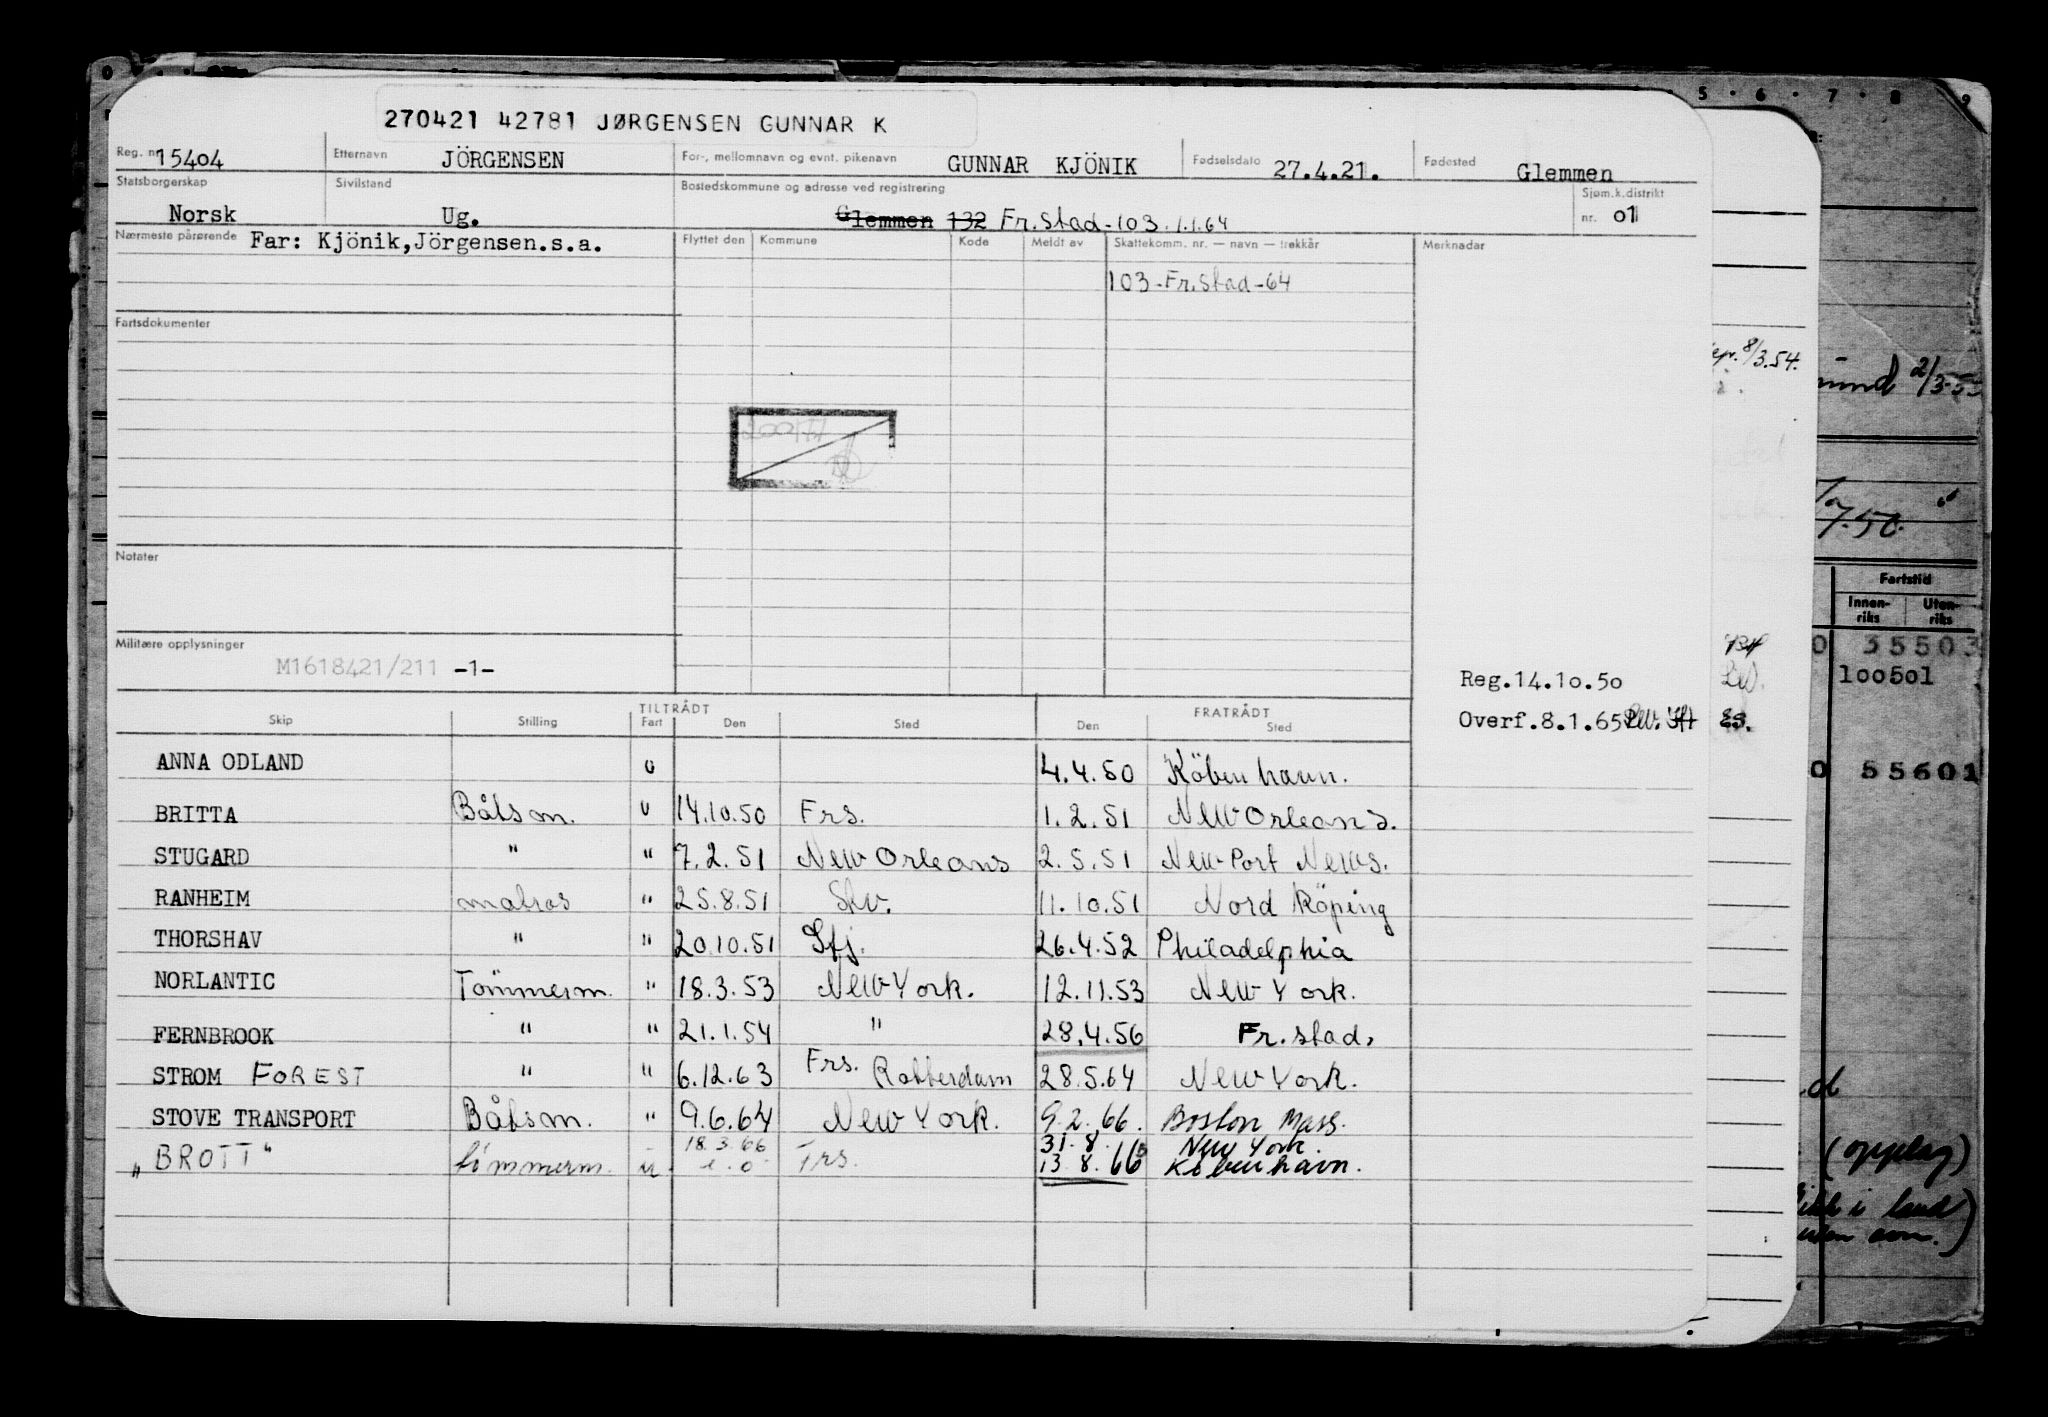 270421 42781 JØRGENSEN GUNNAR K
Reg. nr. 15404 Etternavn JÖRGENSEN For-, mellomnavn og evnt. pikenavn GUNNAR KJÖNIK Fødselsdato 27.4.21. Fødested Glemmen
Statsborgerskap Norsk Sivilstand Ug. Bostedskommune og adresse ved registrering Glemmen 132 Fr.stad-103.1.1.64 Sjøm.k.distrikt nr. 01
Nærmeste pårørende Far: Kjönik,Jörgensen.s.a. Flyttet den Kommune Kode Meldt av Skattekomm. nr. — navn — trekkår Merknader
103-Fr.stad-64
Fartsdokumenter
Notater
Militære opplysninger
M1618421/211 -1-
Reg.14.10.50
Overf.8.1.65
TILTRÅDT FRATRÅDT
Skip Stilling Fart Den Sted Den Sted
ANNA ODLAND U 4.4.50 Köbenhavn.
BRITTA Båtsm. U 14.10.50 Frs. 1.2.51 New Orleans.
STUGARD " " 7.2.51 New Orleans 2.5.51 New Port News.
RANHEIM matros " 25.8.51 Stv. 11.10.51 Nord Köping
THORSHAV " " 20.10.51 Sfj. 26.4.52 Philadelphia
NORLANTIC Tömmerm. " 18.3.53 New York. 12.11.53 New York.
FERNBROOK " " 21.1.54 " 28.4.56 Fr.stad.
STROM FOREST " " 6.12.63 Frs. Rotterdam 28.5.64 New York.
STOVE TRANSPORT Båtsm. " 9.6.64 New York. 9.2.66. Boston Mass.
18.3.66 31.8. New York.
"BROTT" tömmerm. u Frs. 13.8.66 Köbenhavn.
5 6 7 8 9
8/3.54.
2/3-5
7.50
Fartstid
Innen-riks Uten-riks
35503
100501
55601
(opplag)
i land